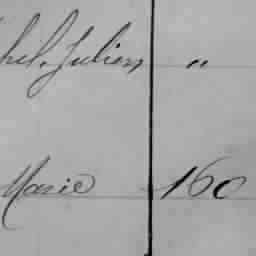 hel, Julien "
Marie 160